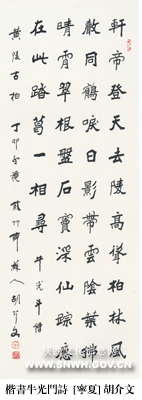 軒帝登天去陵高聳柏林風
嚴同鶴唳日影帶雲陰葉拂
晴霄翠根盤石竇深仙踪應
在此踏葛一相尋 牛光斗詩
黃陵古柏 丁卯 胡介文
WWW.SNWH.GOV.CN
楷書牛光鬥詩 [寧夏] 胡介文